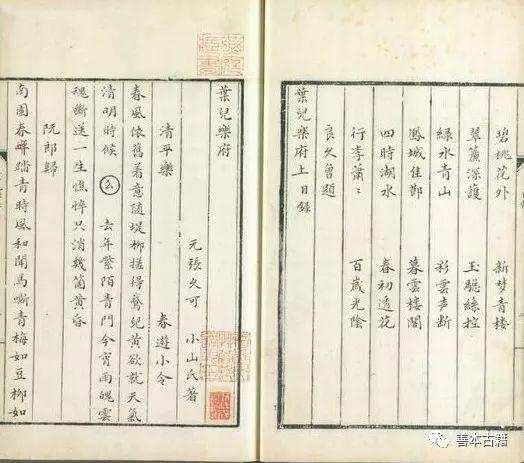 碧桃花外　新梦青楼
翠簾深護　玉驄絲控
綠水青山　彩雲声断
鳳城佳節　暮雲樓閣
四時湖水　春初透花
行李蕭〻　百歲光陰
良久曾題
葉兒樂府上目錄
葉兒樂府
元張久可　小山氏著
清平樂　春遊小令
春風依舊著意隨堤柳搓得鵞兒黃欲就天氣
清明時候　么　去年紫陌青門今宵雨魄雲
魂斷送一生憔悴只消幾箇黃昏
阮郎歸
南園春半踏青時風和聞馬嘶青梅如豆柳如
善本古籍